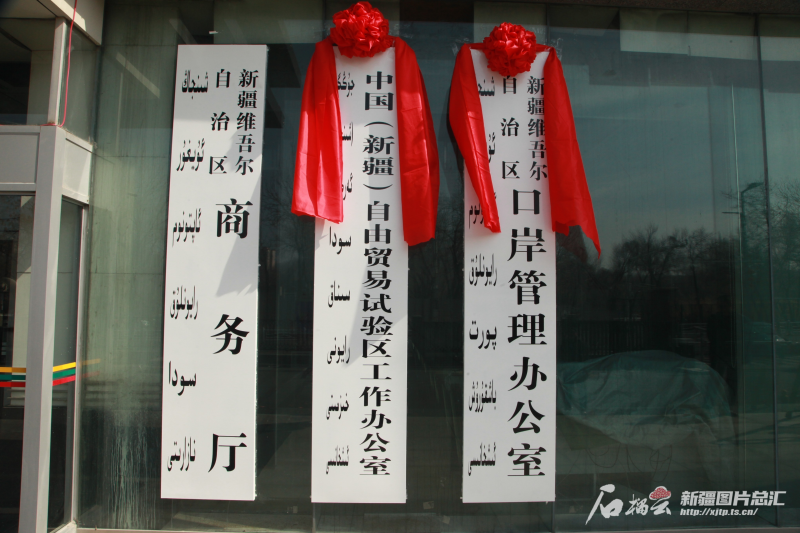 新疆维吾尔
自治区
商务厅
شىنجاڭ ئۇيغۇر ئاپتونوم رايونلۇق سودا نازارىتى
中国（新疆）自由贸易试验区工作办公室
سودا سىناق رايونى خىزمىتى ئىشخانىسى
新疆维吾尔
自治区
口岸管理办公室
رايونلۇق پورت باشقۇرۇش ئىشخانىسى
石榴云
新疆图片总汇
http://xjtp.ts.cn/